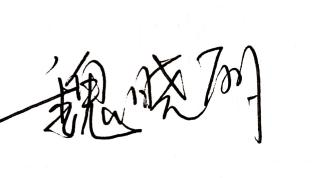 魏晓刚